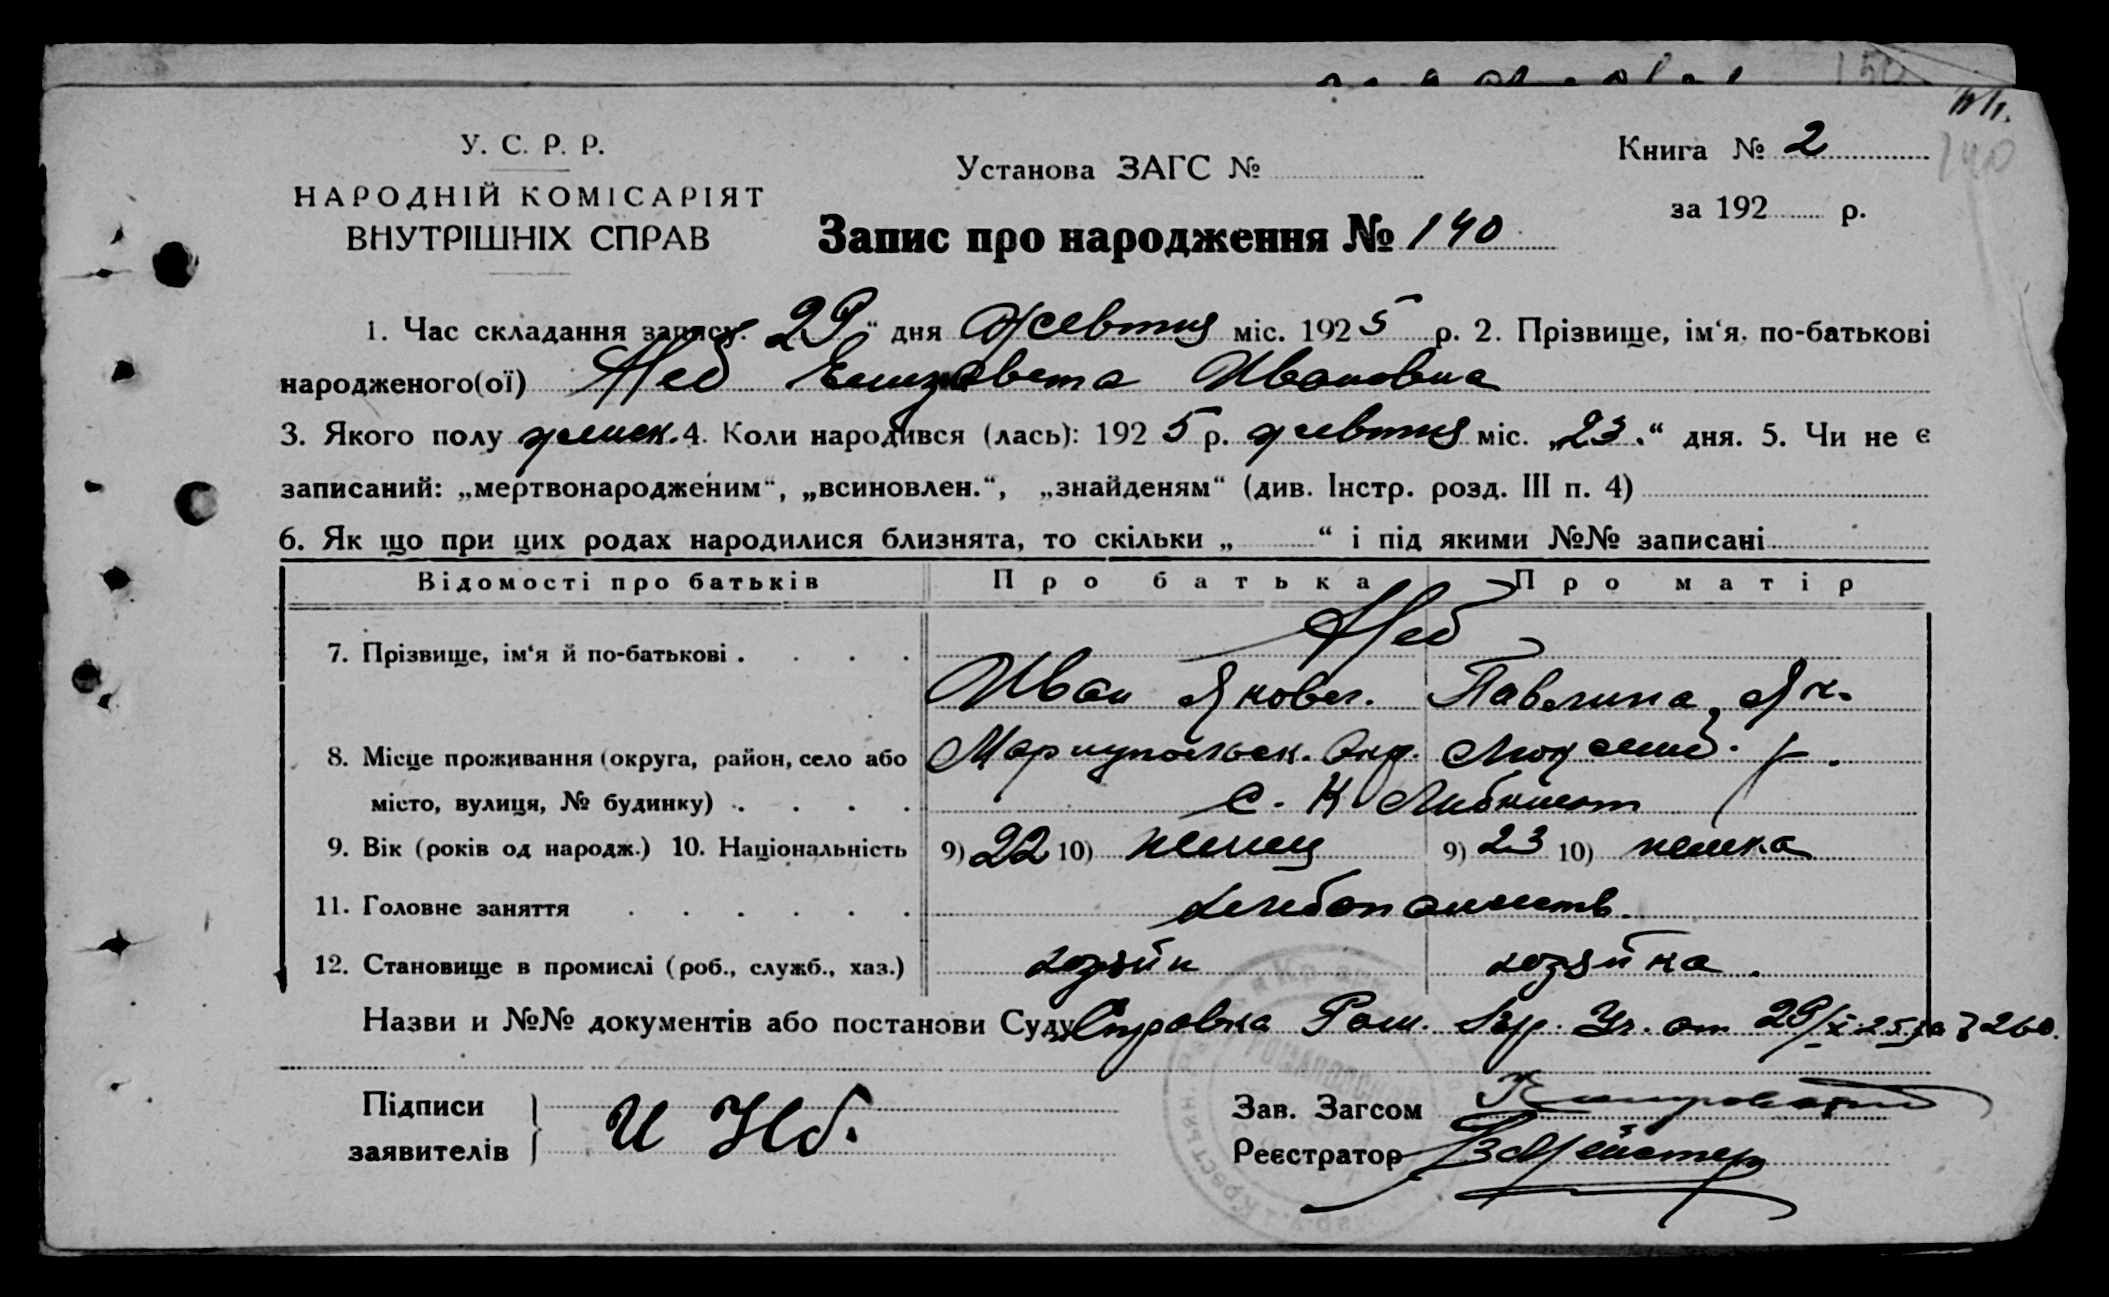 150
140
У. С. Р. Р.
НАРОДНІЙ КОМІСАРІЯТ
ВНУТРІШНІХ СПРАВ
Установа ЗАГС №
Книга № 2
за 192 р.
Запис про народження № 140
1. Час складання запису. 29 “ дня жевтня міс. 1925 р. 2. Прізвище, ім‘я, по-батькові
народженого(ої) Неб Елизавета Ивановна
3. Якого полу женск. 4. Коли народився (лась): 1925 р. жевтня міс. „23.“ дня. 5. Чи не є
записаний: „мертвонародженим“, „всиновлен.“, „знайденям“ (див. Інстр. розд. III п. 4)
6. Як що при цих родах народилися близнята, то скільки „ “ і під якими №№ записані
Відомості про батьків Про батька Про матір
7. Прізвище, ім‘я й по-батькові . . . . Неб
Иван Яковл. Павлина Як.
8. Місце проживання (округа, район, село або Мариупольск. Окр. Люксемб. р.
місто, вулиця, № будинку) . . . . с. К. Либкнехт
9. Вік (років од народж.) 10. Національність 9) 22 10) немец 9) 23 10) немка
11. Головне заняття . . . . . . хлебопашеств.
12. Становище в промислі (роб., служб., хаз.) хозяин хозяйка.
Назви и №№ документів або постанови Суду Справка от 29/X 25 260.
Підписи
заявителів И Неб.
Зав. Загсом
Реєстратор